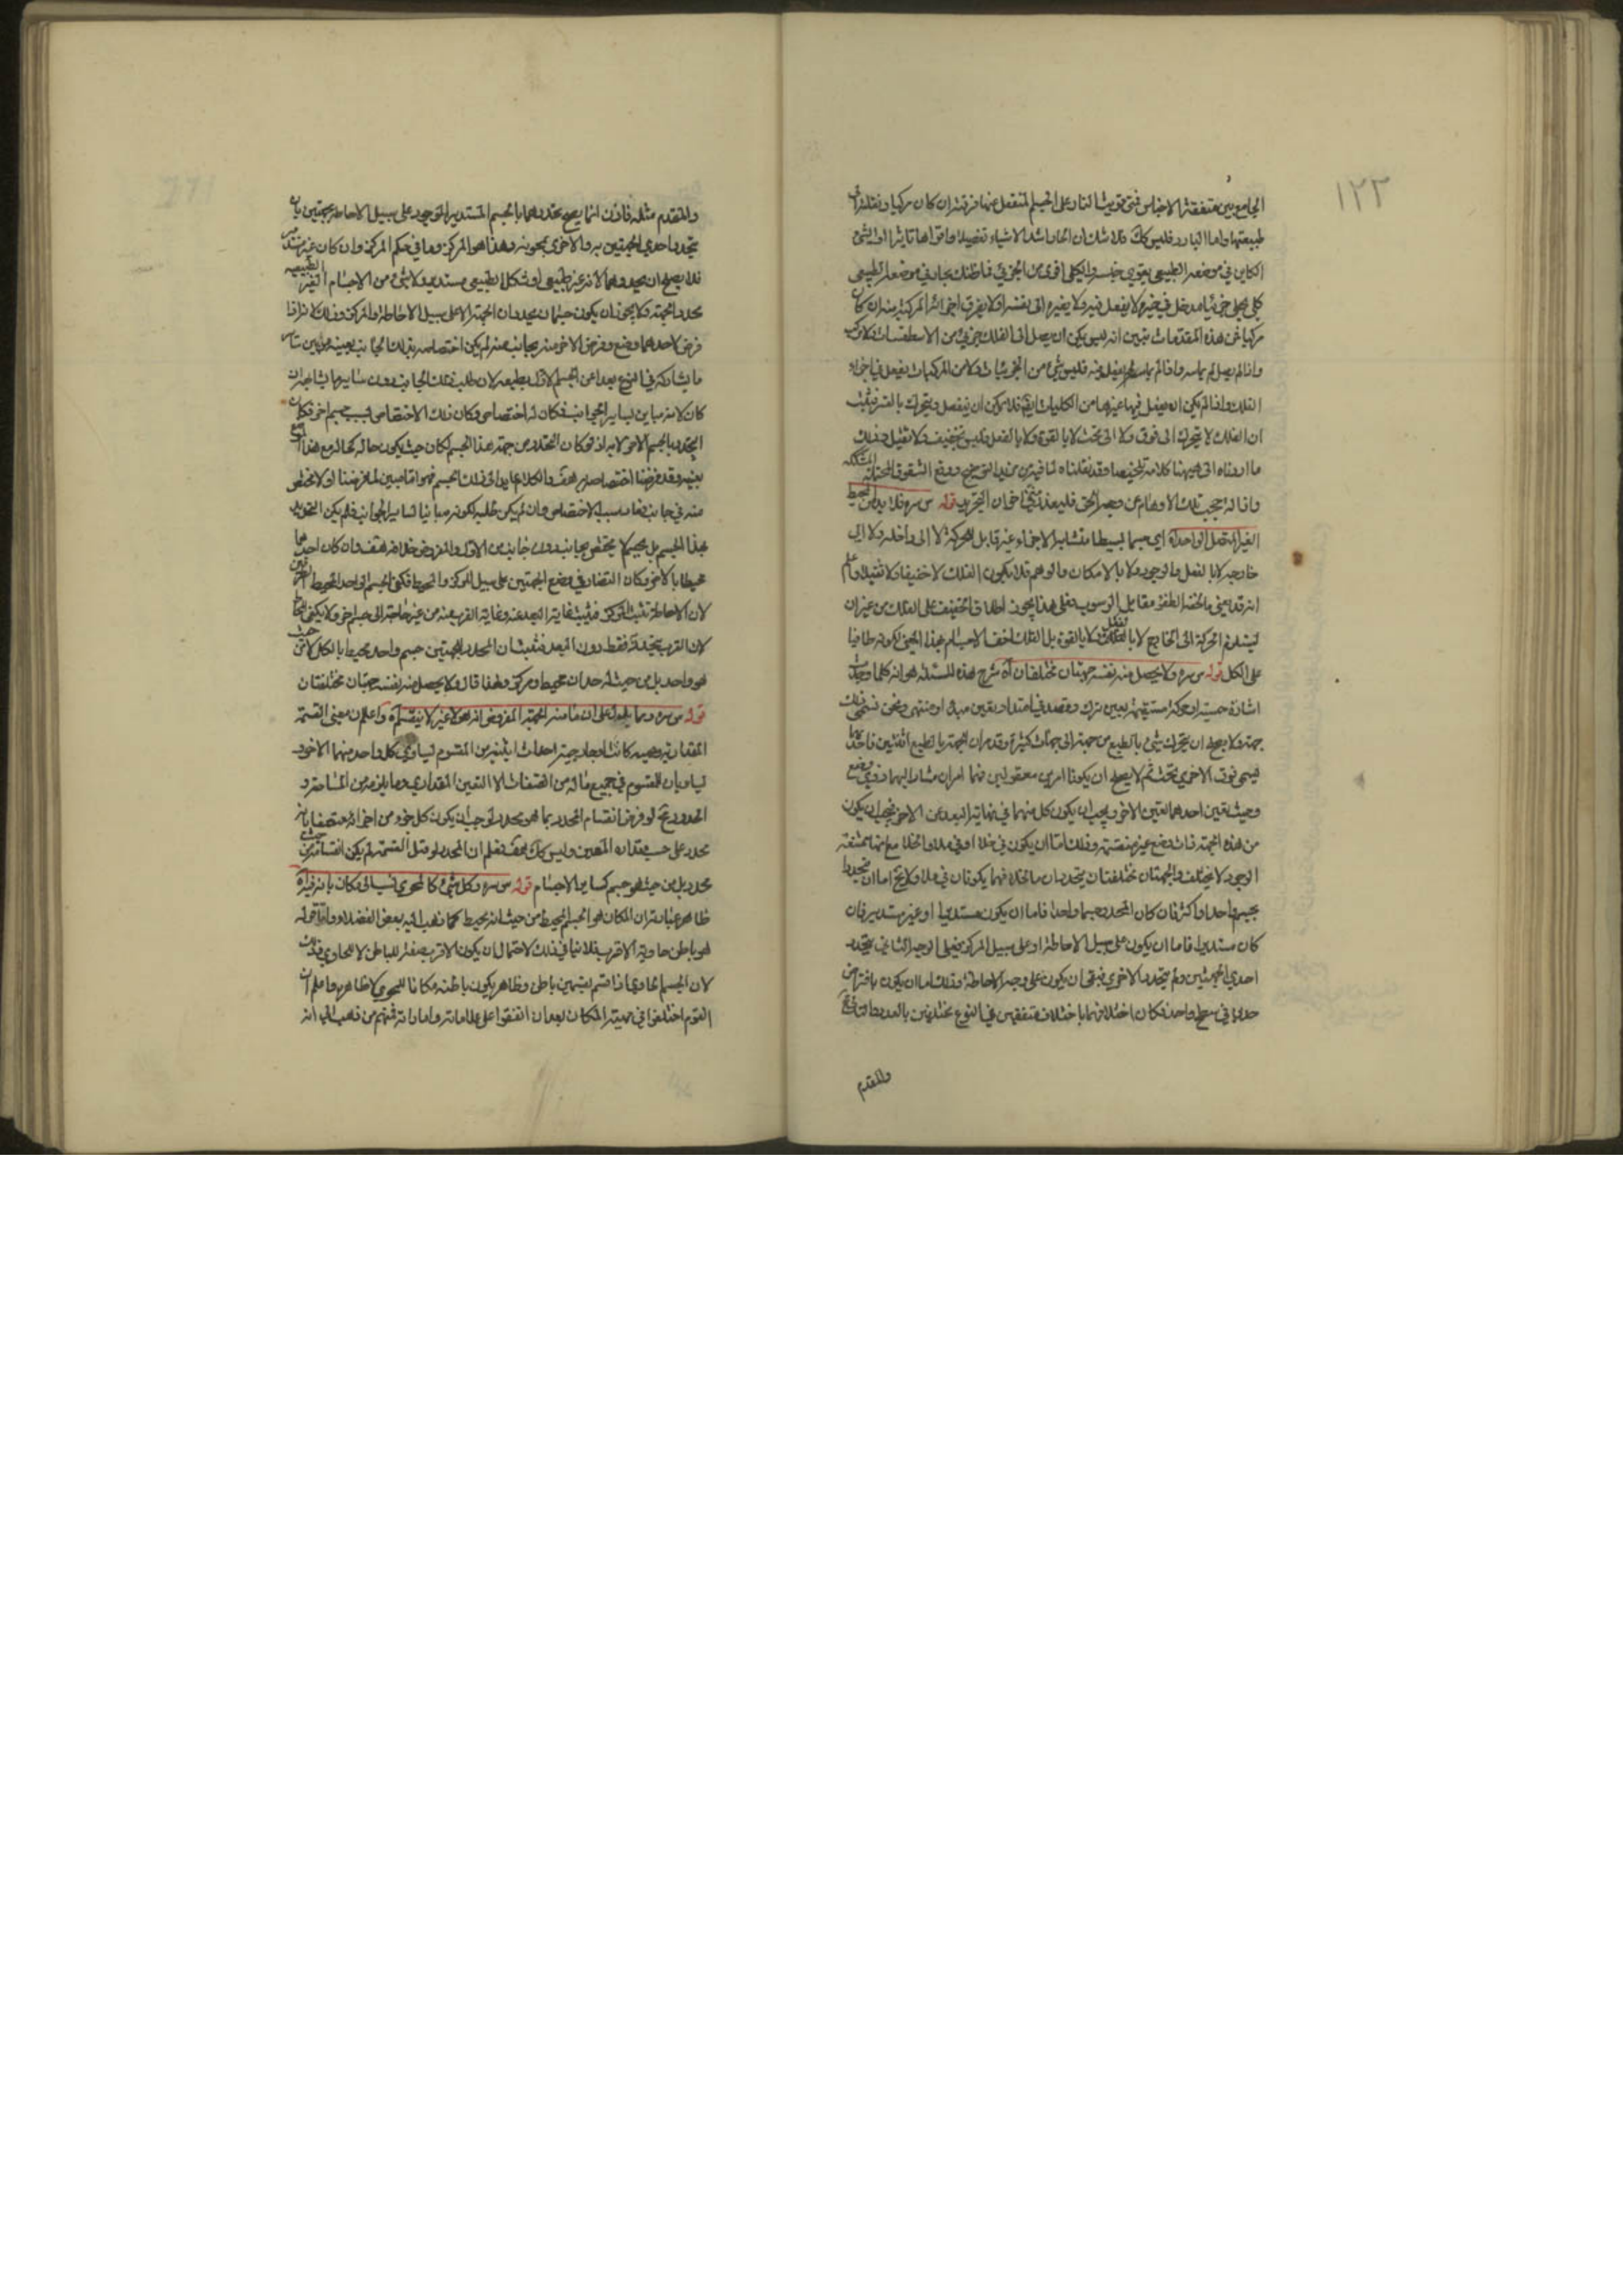 ١٢٣
الجامع بين متفقة الاجناس فتى قويت النار على الجسم المنفعل عنها فرقته ان كان مركبا ونقلته الى
طبيعتها واما البارد فليس كك ولا شك ان الحار اشد الاشياء تفصيلا واقواها تاثيرا والشئ
الكاين في موضعه الطبيعي يقوي جنسه والكلي اقوى من الجزئي فما ظنك بحار في موضعه الطبيعي
كلي يخلي جزئيا مدخل في حيزه لا يفعل فيه ولا يغيره الى نفسه اولا يفرق اجزائه المركبة منه ان كان
مركبا فمن هذه المقدمات تبين انه ليس يمكن ان يصل الى الفلك جزئي من الاسطقسات ولا مركب
واذا لم يصل لم يماسه واذا لم يماسه لم ينفعل عنه فليس شئ من الجزئيات ولا من المركبات يفعل في اجزاء
الفلك واذا لم يمكن ان يفعل فيها غيرها من الكليات فلا يمكن ان ينفصل ويتحرك بالقسر فيثبت
ان الفلك لا يتحرك الى فوق ولا الى تحت لا بالقوة ولا بالفعل وليس بخفيف ولا ثقيل وذلك
ما اردناه الى هيهنا كلامه تلخيصا وقد نقلناه لما فيه من مزيد التوضيح ودفع الشقوق المحتملة المشككة
واذا له حجب تلك الاوهام عن وجه الحق فليعد الى
قوله س سره فلا بد من محيط
الغير المتصل الواحد اه اي جسما بسيطا متشابه الاجزاء غير قابل للحركة لا الى داخله ولا الى
خارجه لا بالفعل والوجود ولا بالامكان والوهم فلا يكون الفلك لا خفيفا ولا ثقيلا واعلم
انه قد يعني بالخفة الطفو مقابل الرسوب فعلى هذا يجوز اطلاق الخفيف على الفلك من غير ان
يستلزم الحركة الى الخارج لا بالفعل ولا بالقوة بل الفلك اخف الاجسام بهذا المعنى لكونه طافيا
على الكل قوله س سره ولا يحصل منه نفسه جهتان مختلفتان اه شرح هذه المسئلة هو انه كلما وجدت
اشارة حسية او حركة مستقيمة لجسم بين ترك وقصد في امتداد بعين مبدء او منتهى ونحن نسمي ذلك
جهة ولا يصح ان يتحرك شئ بالطبع من جهة الى جهات كثيرة وقد مر ان الجهة بالطبع اثنتين فاحدهما
ليسمى فوق والاخرى تحت ثم لا يصح ان يكونا امرين معقولين فهما امران مشار اليهما ذوى وضع
وحيث تعين احدهما تعين الاخر ويجب ان يكون كل منهما في نهاية البعد عن الاخر فيجب ان يكون
من هذه الجهة ذات وضع غير منقسمة وذلك اما ان يكون في خلاء او في ملاء والخلاء مع انه ممتنع
الوجود لا يختلف والجهتان مختلفتان يتحددان ما خلاه فهما يكونان في ملاء ولا يخ اما ان يتحددا
بجسم واحد او اكثر فان كان المحدد جسما واحدا فاما ان يكون مستديرا او غير مستدير فان
كان مستديرا فاما ان يكون على سبيل الاحاطة او على سبيل المركز فعلى الوجه الثاني يتحدد
احدي الجهتين ولم يتحدد الاخرى فبقى ان يكون على وجه الاحاطة وذلك اما ان يكون بافتراض
حدين في سطح واحد فكان اختلافهما باختلاف متفقين في النوع مختلفين بالعدد والتالي
والمقدم
والمقدم مثله فاذن انما يصح تحددهما بالجسم المستدير الموجود على سبيل الاحاطة بجهتين بان
يتحدد احدي الجهتين به والاخرى بحوته وهذا هو المركز وما في حكم المركز وان كان غير مستدير
فلا يصح ان يحددهما لانه غير طبيعي او شكل الطبيعي مستدير ولا شئ من الاجسام الغير الطبيعية
محدد الجهة ولا يجوز ان يكون جسمان يحددان الجهة الا على سبيل الاحاطة والمركز وذلك لانه اذا
فرض لاحدهما وضع وفرض الاخر منه بجانب عنه لم يكن اختصاصه بذلك الجانب بعينه من بين سائر
ما يشاركه في النوع بعدا عن الجسم الاول بطبعه لان طلب ذلك الجانب دون سايرها يشابه ان
كان لانه مباين لساير الجوانب فكان له اختصاص وكان ذلك الاختصاص بسبب جسم اخر فكان
التحدد بالجسم الاخر لا به اذ لو كان المحدد من جهة هذا الجسم لكان حيث يكون حاله كحاله مع هذا الوضع
بعينه وقد فرضنا اختصاصه به هف والكلام عايد الى ذلك الجسم فهو اما مبين لما فرضنا او لا يختص
منه في جانب فما سبب الاختصاص وان لم يكن طلبه لكونه مباينا لساير الجوانب فلم يكن التحديد
بهذا الجسم بل بجسم لا يختص بجانب دون جانب من الاول والمفروض خلافه هف وان كان احدهما
محيطا بالاخر وكان التضاد في وضع الجهتين على سبيل المركز والمحيط فكفى الجسم الواحد المحيط
لان الاحاطة تثبت المركز فيثبت غاية البعد عنه وغاية القرب منه من غير حاجة الى جسم اخر ولا يكفي المحاط
لان القرب يتحدد به فقط دون البعد فثبت ان المحدد للجهتين جسم واحد محيط بالكل لا من حيث
هو واحد بل من حيث له حدان محيط ومركز ولهذا قال ولا يحصل منه نفسه جهتان مختلفتان
قوله س سره ومما يدل على ان ما منه الجهة المفروض انه هو لا غير لا ينقسم اه واعلم ان معنى القسمة
المقدارية وهمية كانت او خارجية احداث اثنينية من المقسوم ليساوي كل واحد منهما الاخر
يساويان للمقسوم في جميع ماله من الصفات الا التعين المقداري وما يلزمه من المساحة و
الحدود مع لو فرض انقسام المحدد بما هو محدد لوجب ان يكون كل جزء من اجزائه متصفا بانه
محدد على حسب مقداره المتعين وليس كك هف فعلم ان المحدد لو قبل القسمة لم يكن انقسامه من حيث
محدد بل من حيث هو جسم كساير الاجسام قوله س سره وكل شئ كالمحوي نسبة الى مكان بانه فيه اه
ظاهر عبارته ان المكان هو الجسم المحيط من حيث انه محيط كما ذهب اليه بعض الفضلاء واما قوله
هو باطن حاويه الاقرب فلا ينافي ذلك لاحتمال ان يكون الاقرب صفة للباطن لا للحاوي وذلك
لان الجسم الحاوي اذا قسم بقسمين باطن وظاهر يكون باطنه مكانا للمحوي لا ظاهره واعلم ان
القوم اختلفوا في مهية المكان بعد ان اتفقوا على علاماته واماراته فمنهم من ذهب الى انه